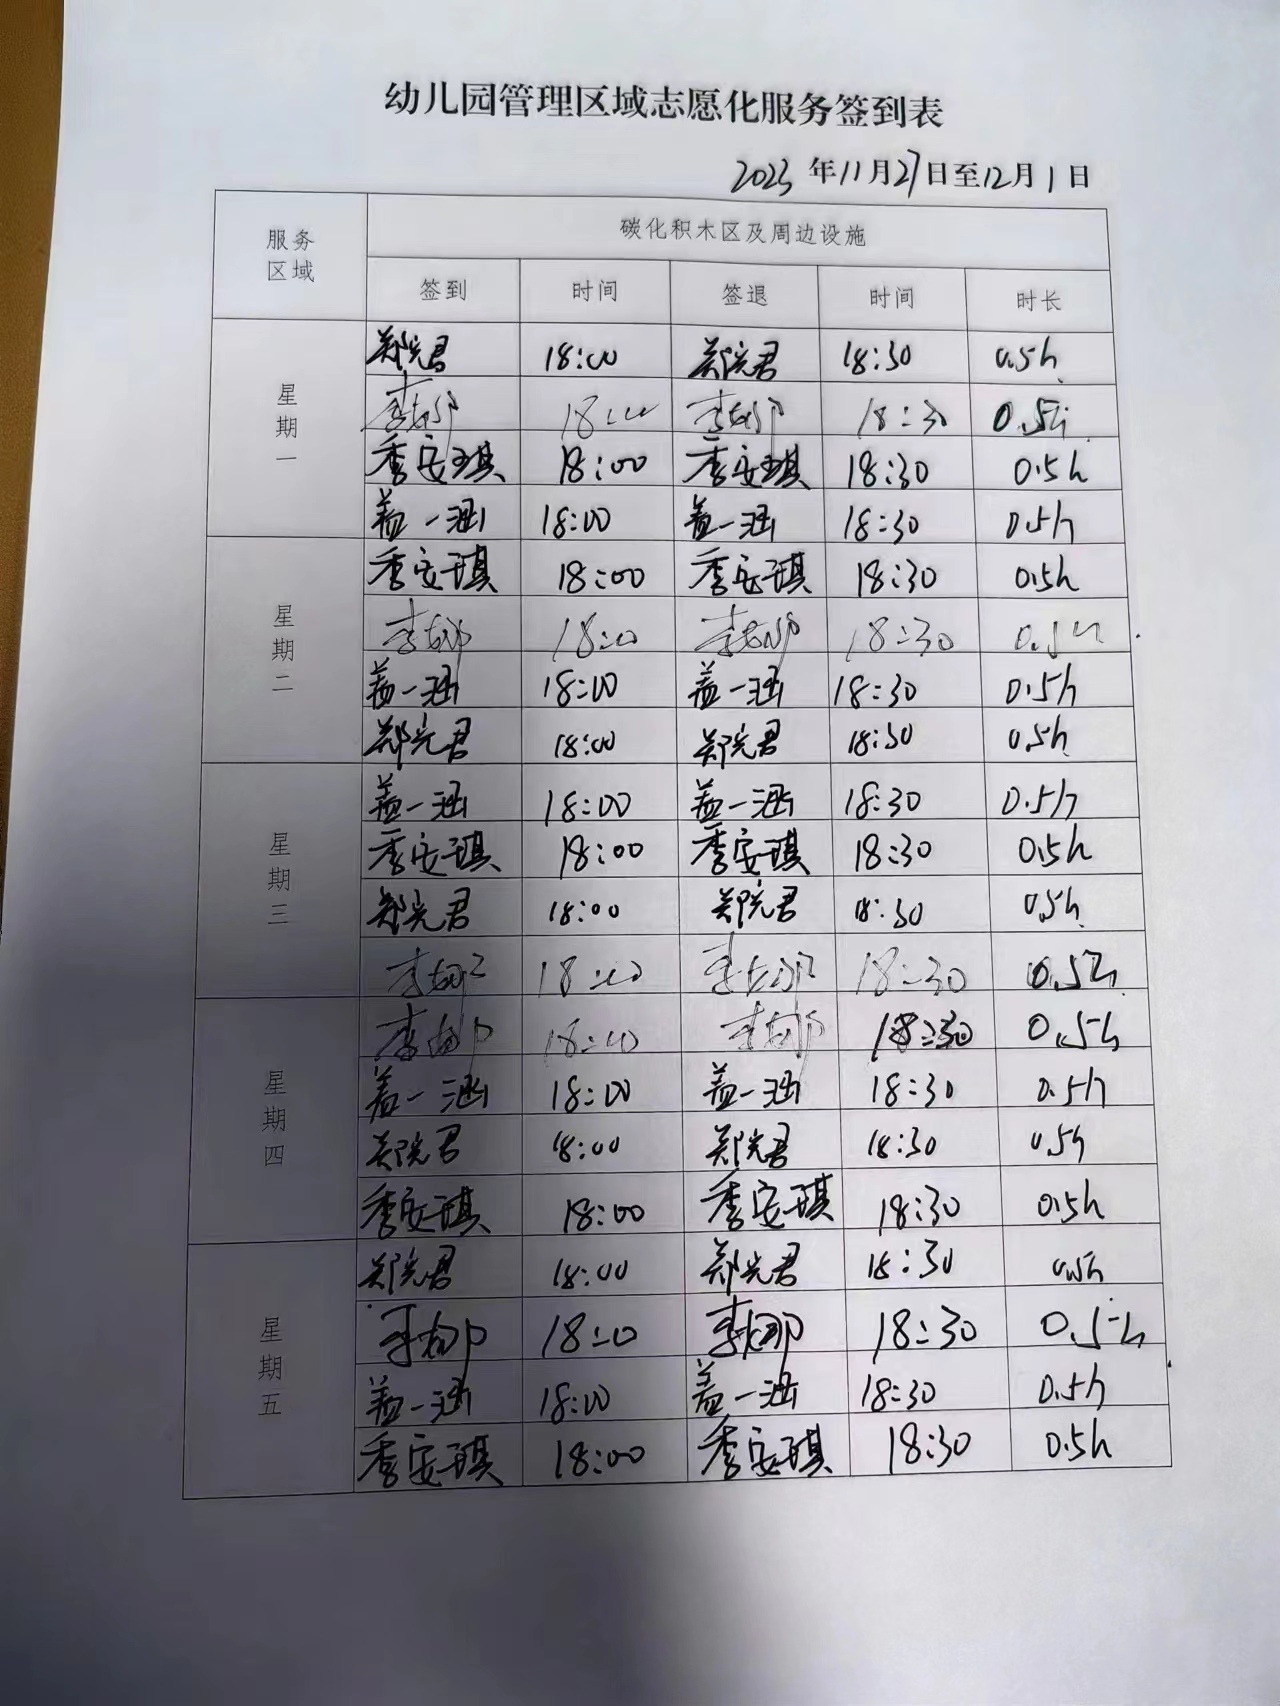 幼儿园管理区域志愿化服务签到表
2023 年11月27日至12月1日
服务区域 碳化积木区及周边设施
签到 时间 签退 时间 时长
星期一
郑完君 18:00 郑完君 18:30 0.5h
李娜 18:00 李娜 18:30 0.5h
季安琪 18:00 季安琪 18:30 0.5h
盖一涵 18:00 盖一涵 18:30 0.5h
星期二
季安琪 18:00 季安琪 18:30 0.5h
李娜 18:00 李娜 18:30 0.5h
盖一涵 18:00 盖一涵 18:30 0.5h
郑完君 18:00 郑完君 18:30 0.5h
星期三
盖一涵 18:00 盖一涵 18:30 0.5h
季安琪 18:00 季安琪 18:30 0.5h
郑完君 18:00 郑完君 18:30 0.5h
李娜 18:00 李娜 18:30 0.5h
星期四
李娜 18:00 李娜 18:30 0.5h
盖一涵 18:00 盖一涵 18:30 0.5h
郑完君 18:00 郑完君 18:30 0.5h
季安琪 18:00 季安琪 18:30 0.5h
星期五
郑完君 18:00 郑完君 18:30 0.5h
李娜 18:00 李娜 18:30 0.5h
盖一涵 18:00 盖一涵 18:30 0.5h
季安琪 18:00 季安琪 18:30 0.5h